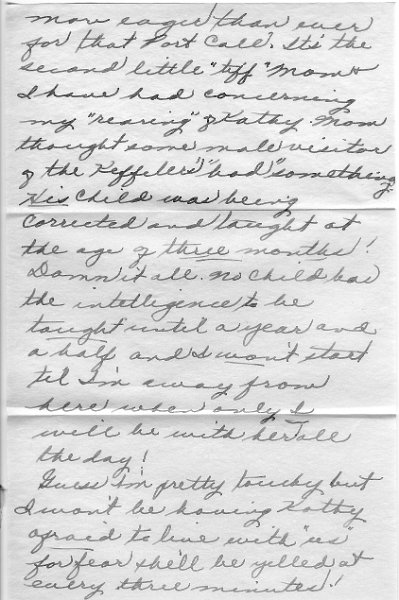 more eager than ever
for that Port Call. It's the
second little "tiff" Mom &
I have had concerning
my "rearing" of Kathy. Mom
thought some male visitor
of the Keffelers' "had" something.
His child was being
corrected and taught at
the age of three months!
Damn it all. No child has
the intelligence to be
taught until a year and
a half and I won't start
til I'm away from
here when only I
will be with her all
the day!
Guess I'm pretty touchy but
I won't be having Kathy
afraid to live with "us"
for fear she'll be yelled at
every three minutes!